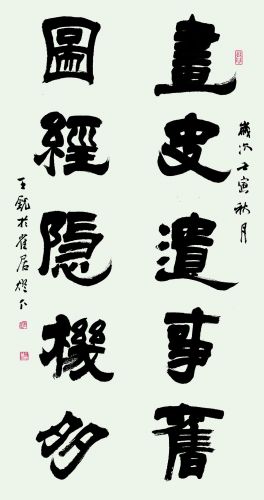 歲次壬寅秋月
畫皮遺事舊
圖經隱機多
王於居燈下